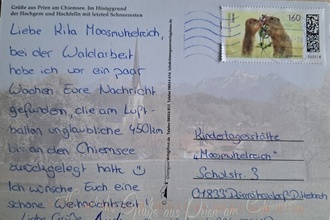 Grüße aus Prien am Chiemsee. Im Hintergrund
der Hochgern und Hochfelln mit letzten Schneeresten
Liebe Kita Moosmutzelreich,
bei der Waldarbeit
habe ich vor ein paar
Wochen Eure Nachricht
gefunden, die am Luft-
ballon unglaubliche 450km
bis an den Chiemsee
zurückgelegt hatte ☺
Ich wünsche Euch eine
schöne Weihnachtszeit!
Liebe Grüße
160
Kindertagesstätte
"Moosmutzelreich"
Schulstr. 3
01833
Grüße aus Prien am